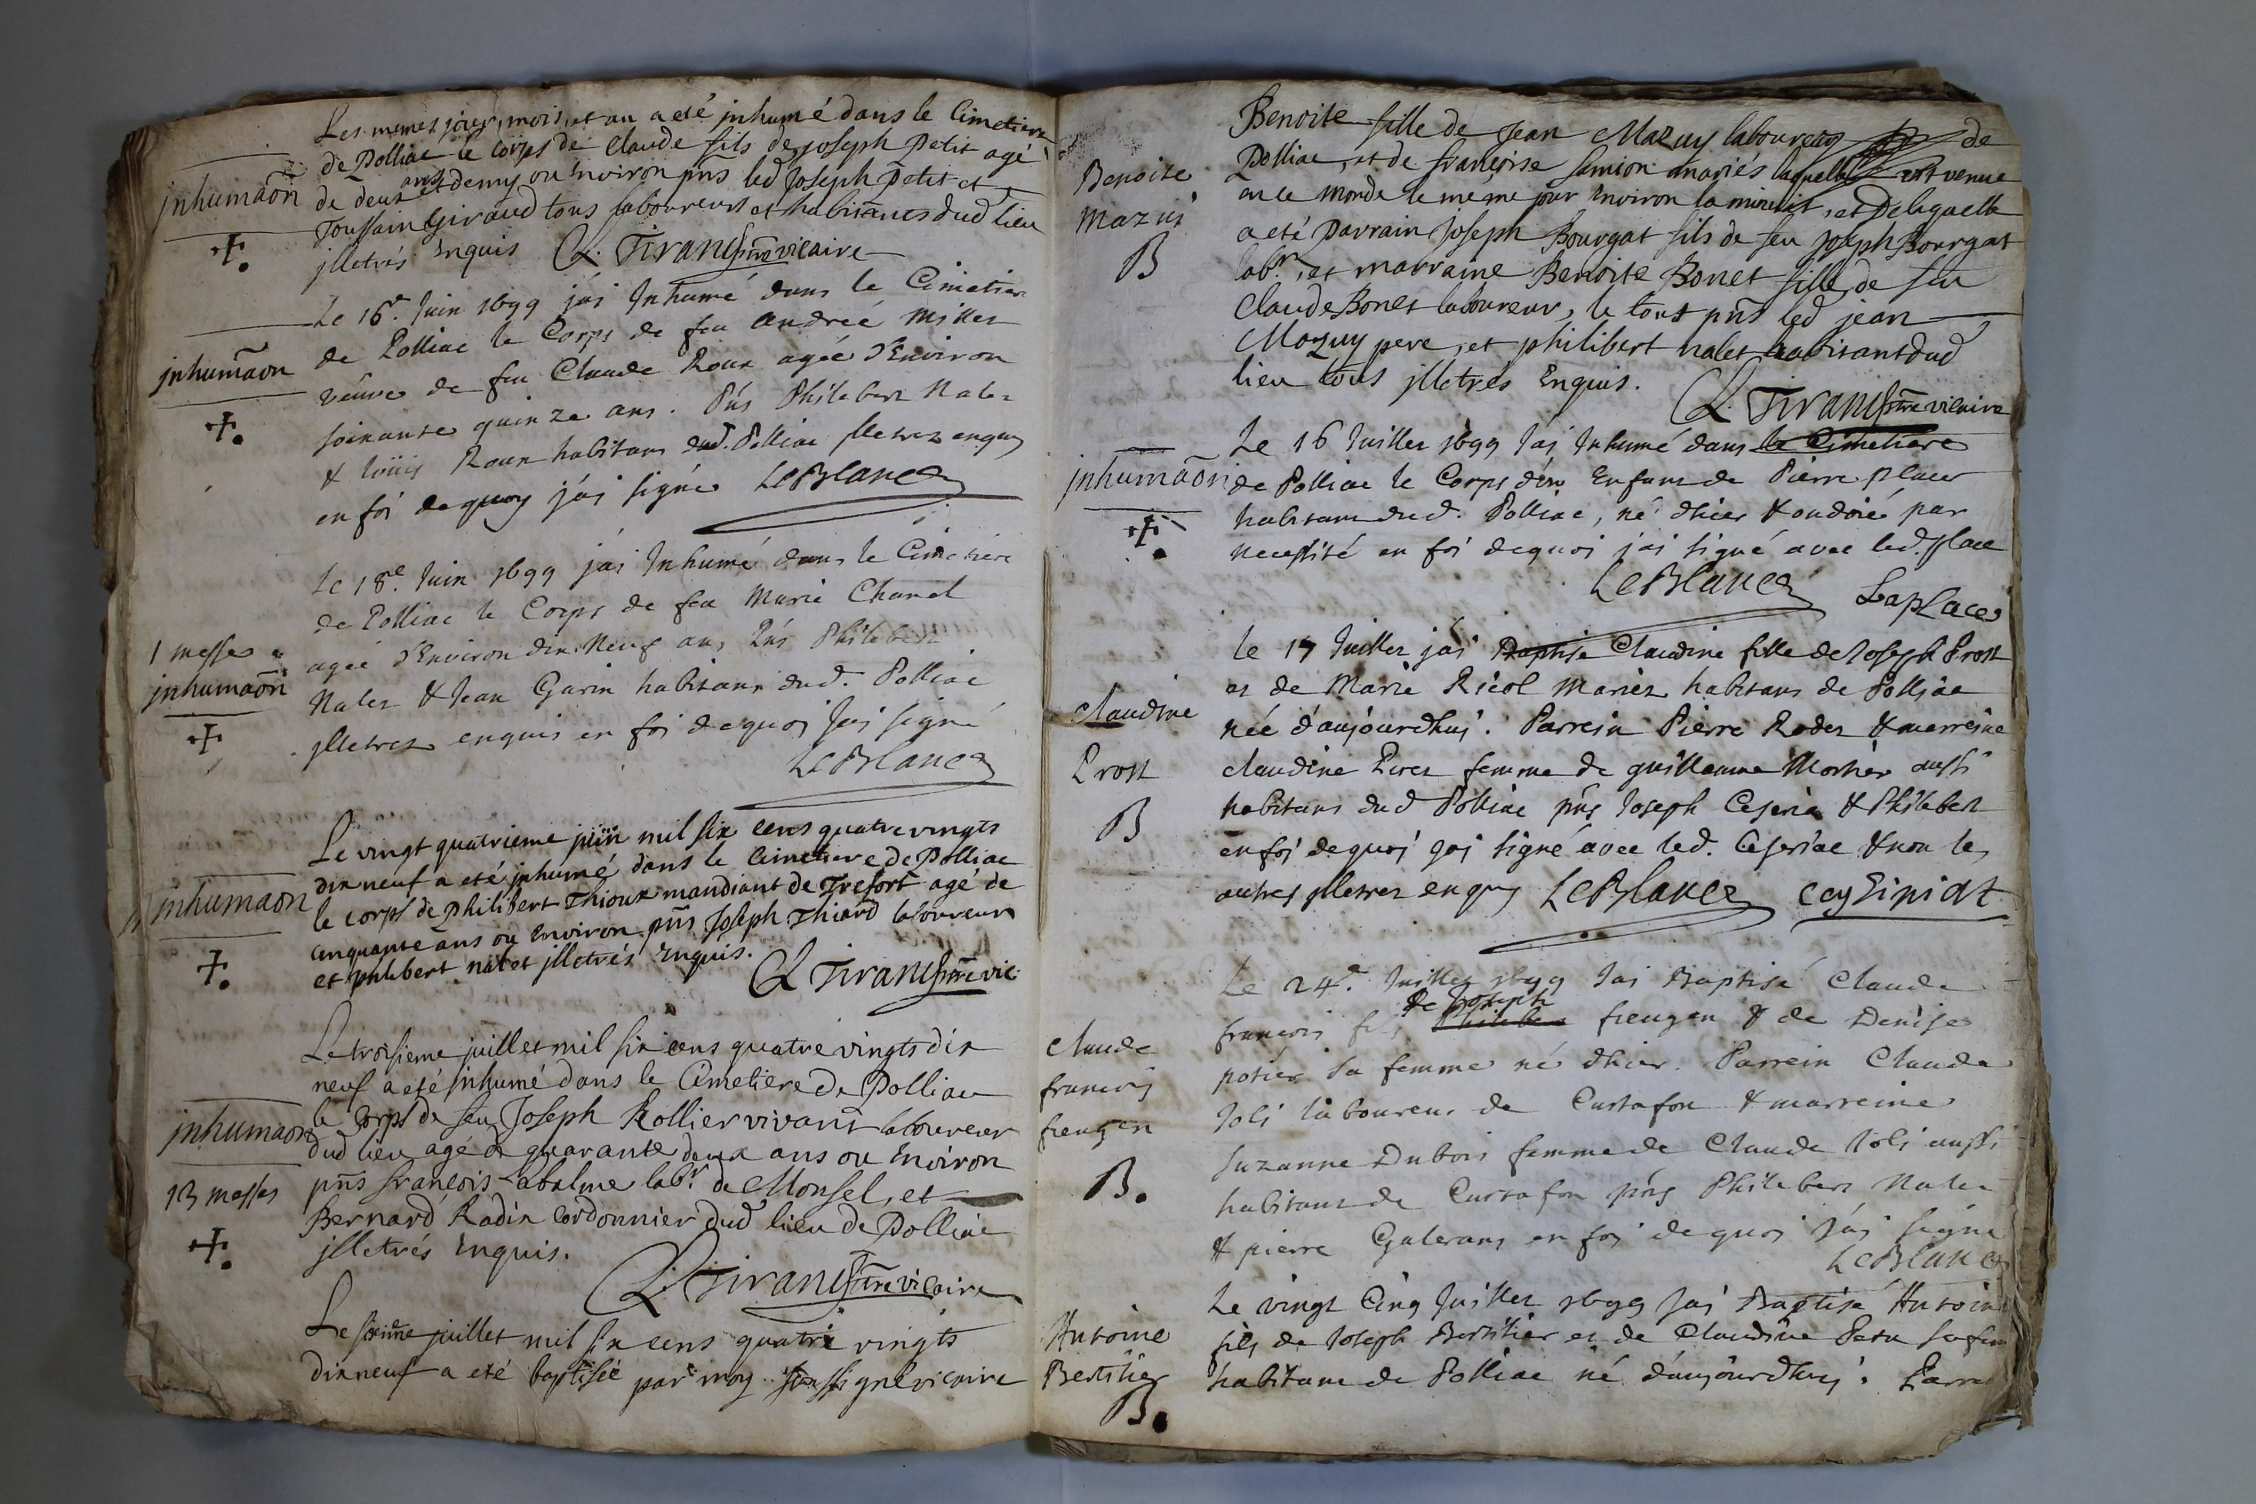 Les memes jour, mois, et an a eté jnhumé dans le Cimetiere
de Polliac le corps de Claude fils de Joseph Petit agé
de deux ans et demy ou Environ pñs led Joseph Petit et
Toussain Giraud tous laboureurs et habitants dud lieu
jlletrés Enquis Tirand ptre vicaire
jnhumãon
Le 16e. Juin 1699 j'ái Inhumé dans le Cimetiere
de Polliac le Corps de feu Andreé Millet
veuve de feu Claude Roux agée d'Environ
soixante quinze ans. Pñs Philebert Nalet
& loüis Roux habitans dud. Polliac jlletrez enquis
en foi de quoy j'ái signé LeBlanc
jnhumãon
Le 18e. Juin 1699 j'ái Inhumé dans le Cimetiére
de Polliac le Corps de feu Marie Chanel
ageé d'Environ dix Neuf ans Pñs Philebert
Nalet & Jean Garin habitans dud. Polliac
jlletrez enquis en foi dequoj j'ai signé
LeBlanc
1 messe
jnhumaõn
Le vingt quatrieme juin mil six cens quatre vingts
dix neuf a eté jnhumé dans le Cimetiere de Polliac
le corps de Philibert Thioux mandiant de Trefort agé de
cinquante ans ou Environ pñs Joseph Thiard laboureur
et philibert nalet jlletrés Enquis.
Tirand ptre vic.
jnhumaon
Le troisieme juillet mil six cens quatre vingts dix
neuf a eté jnhumé dans le Cimetiere de Polliac
le Corps de feu Joseph Rollier vivant laboureur
dud lieu agé de quarante deux ans ou Environ
pñs francois Labalme labr. de Monsel, et
Bernard Radix cordonnier dud lieu de Polliac
jlletrés Enquis.
Tirand ptre vicaire
jnhumaon
13 messes
Le sixième juillet mil six cens quatre vingts
dix neuf a eté baptisée par moy soussigné vicaire
Benoite fille de Jean Mazuy laboureur de
Polliac, et de françoise mariés laquelle est venue
en ce monde le meme jour Environ la minuit, et de laquelle
a eté parrain Joseph Bourgat fils de feu Joseph Bourgat
labr., et marraine Benoite Bonet fille de feu
Claude Bonet laboureur, le tout pñs led jean
Mazuy pere, et philibert nalet habitants dud
lieu tous jlletrés Enquis.
Tirand ptre vicaire
Benoite
Mazui
B
Le 16 Juillet 1699 J'ai Inhumé dans le Cimetiere
de Polliac le Corps d'un Enfant de Pierre place
habitant dud. Polliac, né d'hier & ondoié par
necessité en foi dequoi j'ai signé avec led. place
LeBlanc Laplace
jnhumaõn
Le 17 Juillet j'ái Baptisé Claudine fille de Joseph Prost
et de Marie Ricol Mariez habitans de Polliac
née d'aujourdhuj. Parrein Pierre Rodet & marreine
claudine Perret femme de guillaume Morier aussi
habitans dud Polliac pñs Joseph Ceseria & Philebert
en foj dequoj j'ai signé avec led. & non les
autres jlletrez enquis LeBlanc
claudine
Prost
B
Le 24e. Juillet 1699 J'ai Baptisé Claude
francois fils de Joseph & de Denise
potier sa femme né d'hier. Parrein Claude
Joli laboureur de Curtafon & marreine
Suzanne Dubois femme de Claude Joli aussi
habitans de Curtafon pñs Philebert Nalet
& pierre en foj de quoj j'ái signé
LeBlanc
Claude
francois
B.
Le vingt Cinq Juillet 1699 J'ai Baptisé Antoine
fils de Joseph Bertilier et de Claudine sa fem
habitans de Polliac né d'aujourdhuj. Parre
Antoine
Bertilier
B.